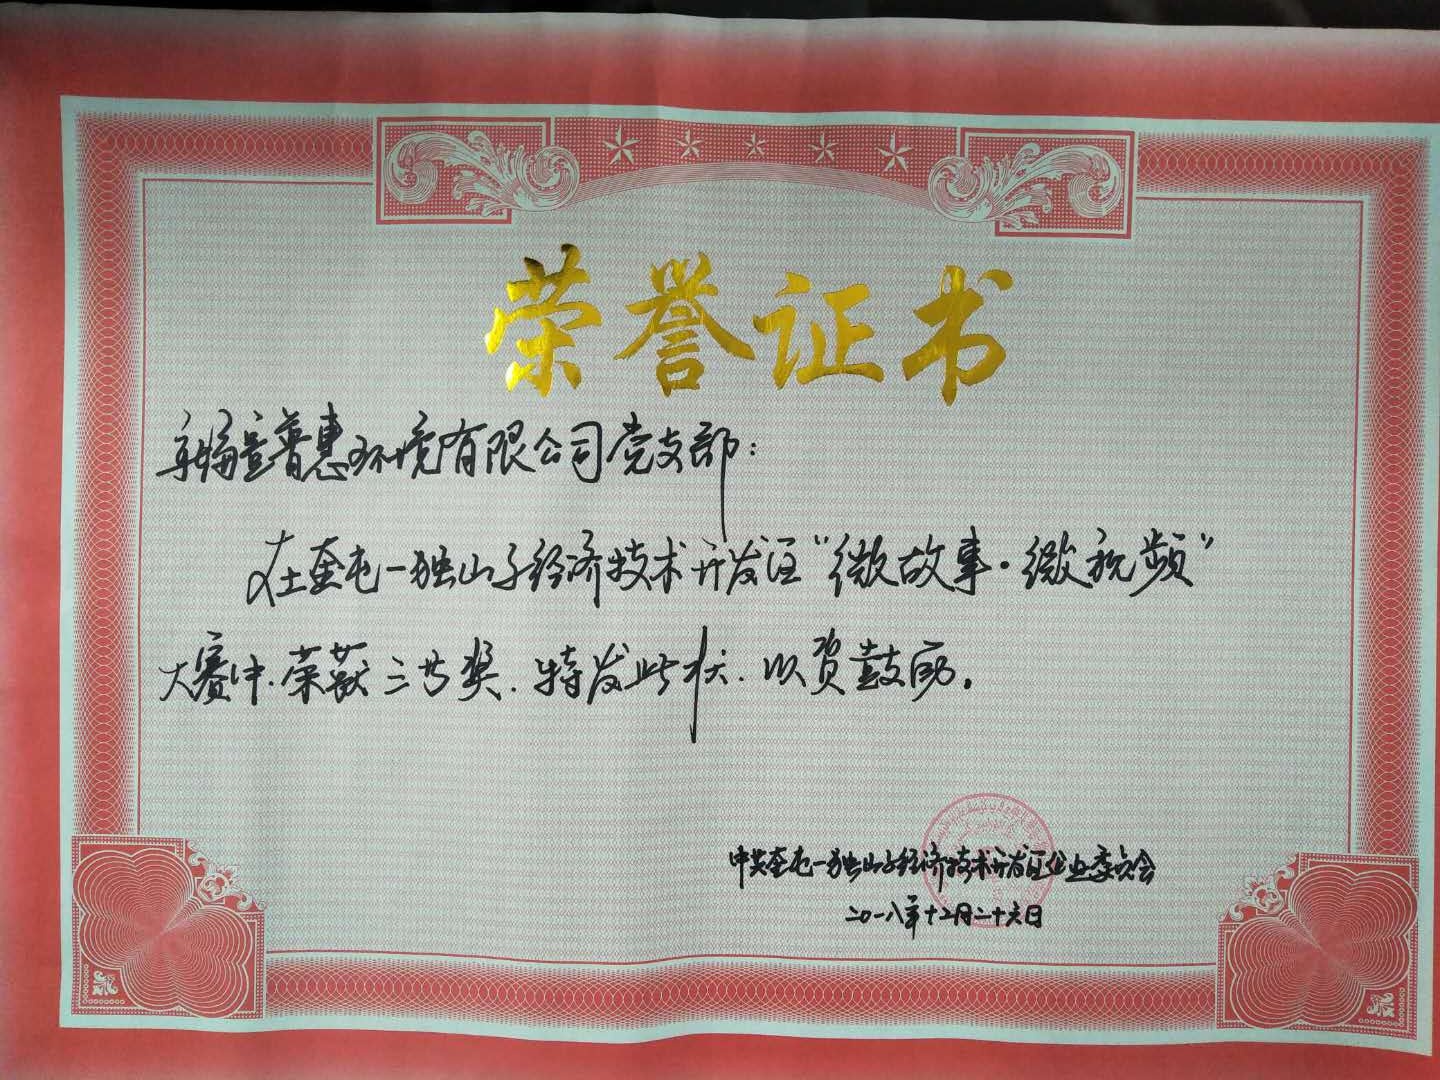 荣誉证书
新疆普惠环境有限公司党支部：
在奎屯一独山子经济技术开发区“微故事·微视频”
大赛中.荣获三等奖.特发此状.以资鼓励。
中共奎屯一独山子经济技术开发区企业委员会
二〇一八年十二月二十六日